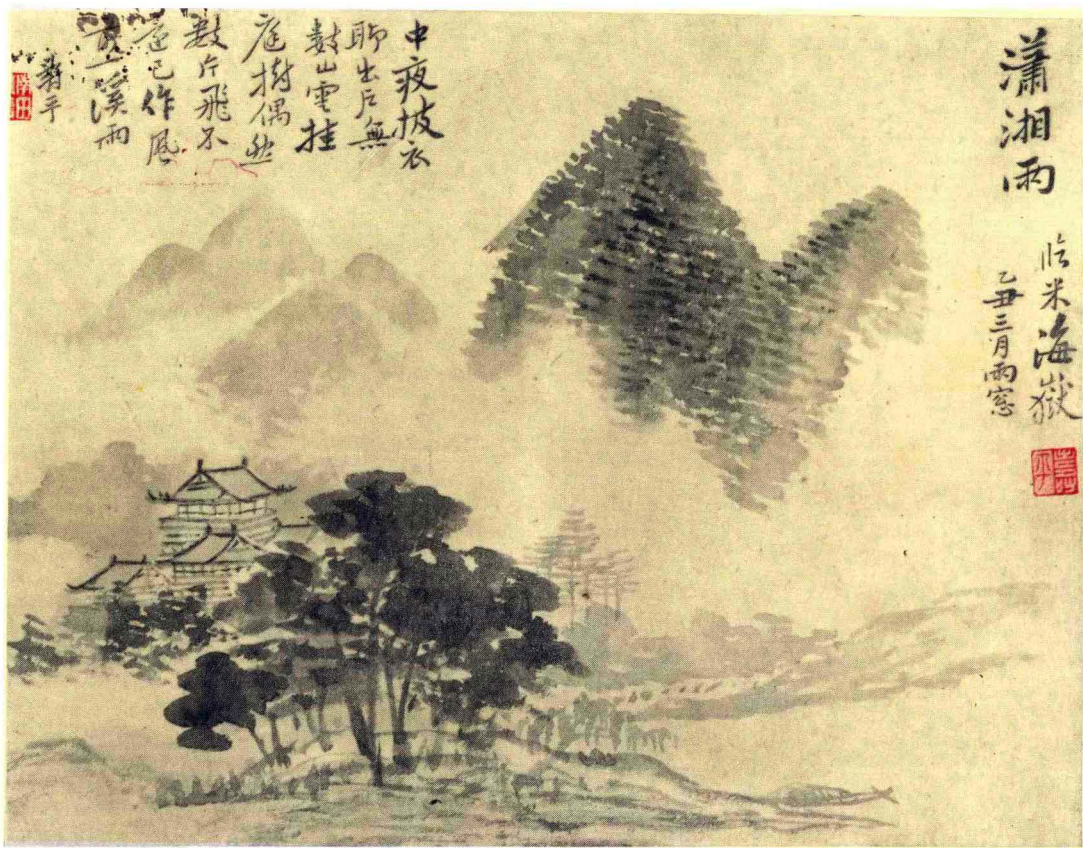 瀟湘雨
臨米海嶽
乙丑三月雨窓
中夜披衣
聊出户無
數山雲挂
庭樹偶然
數片飛不
遠已作風
溪雨
壽平